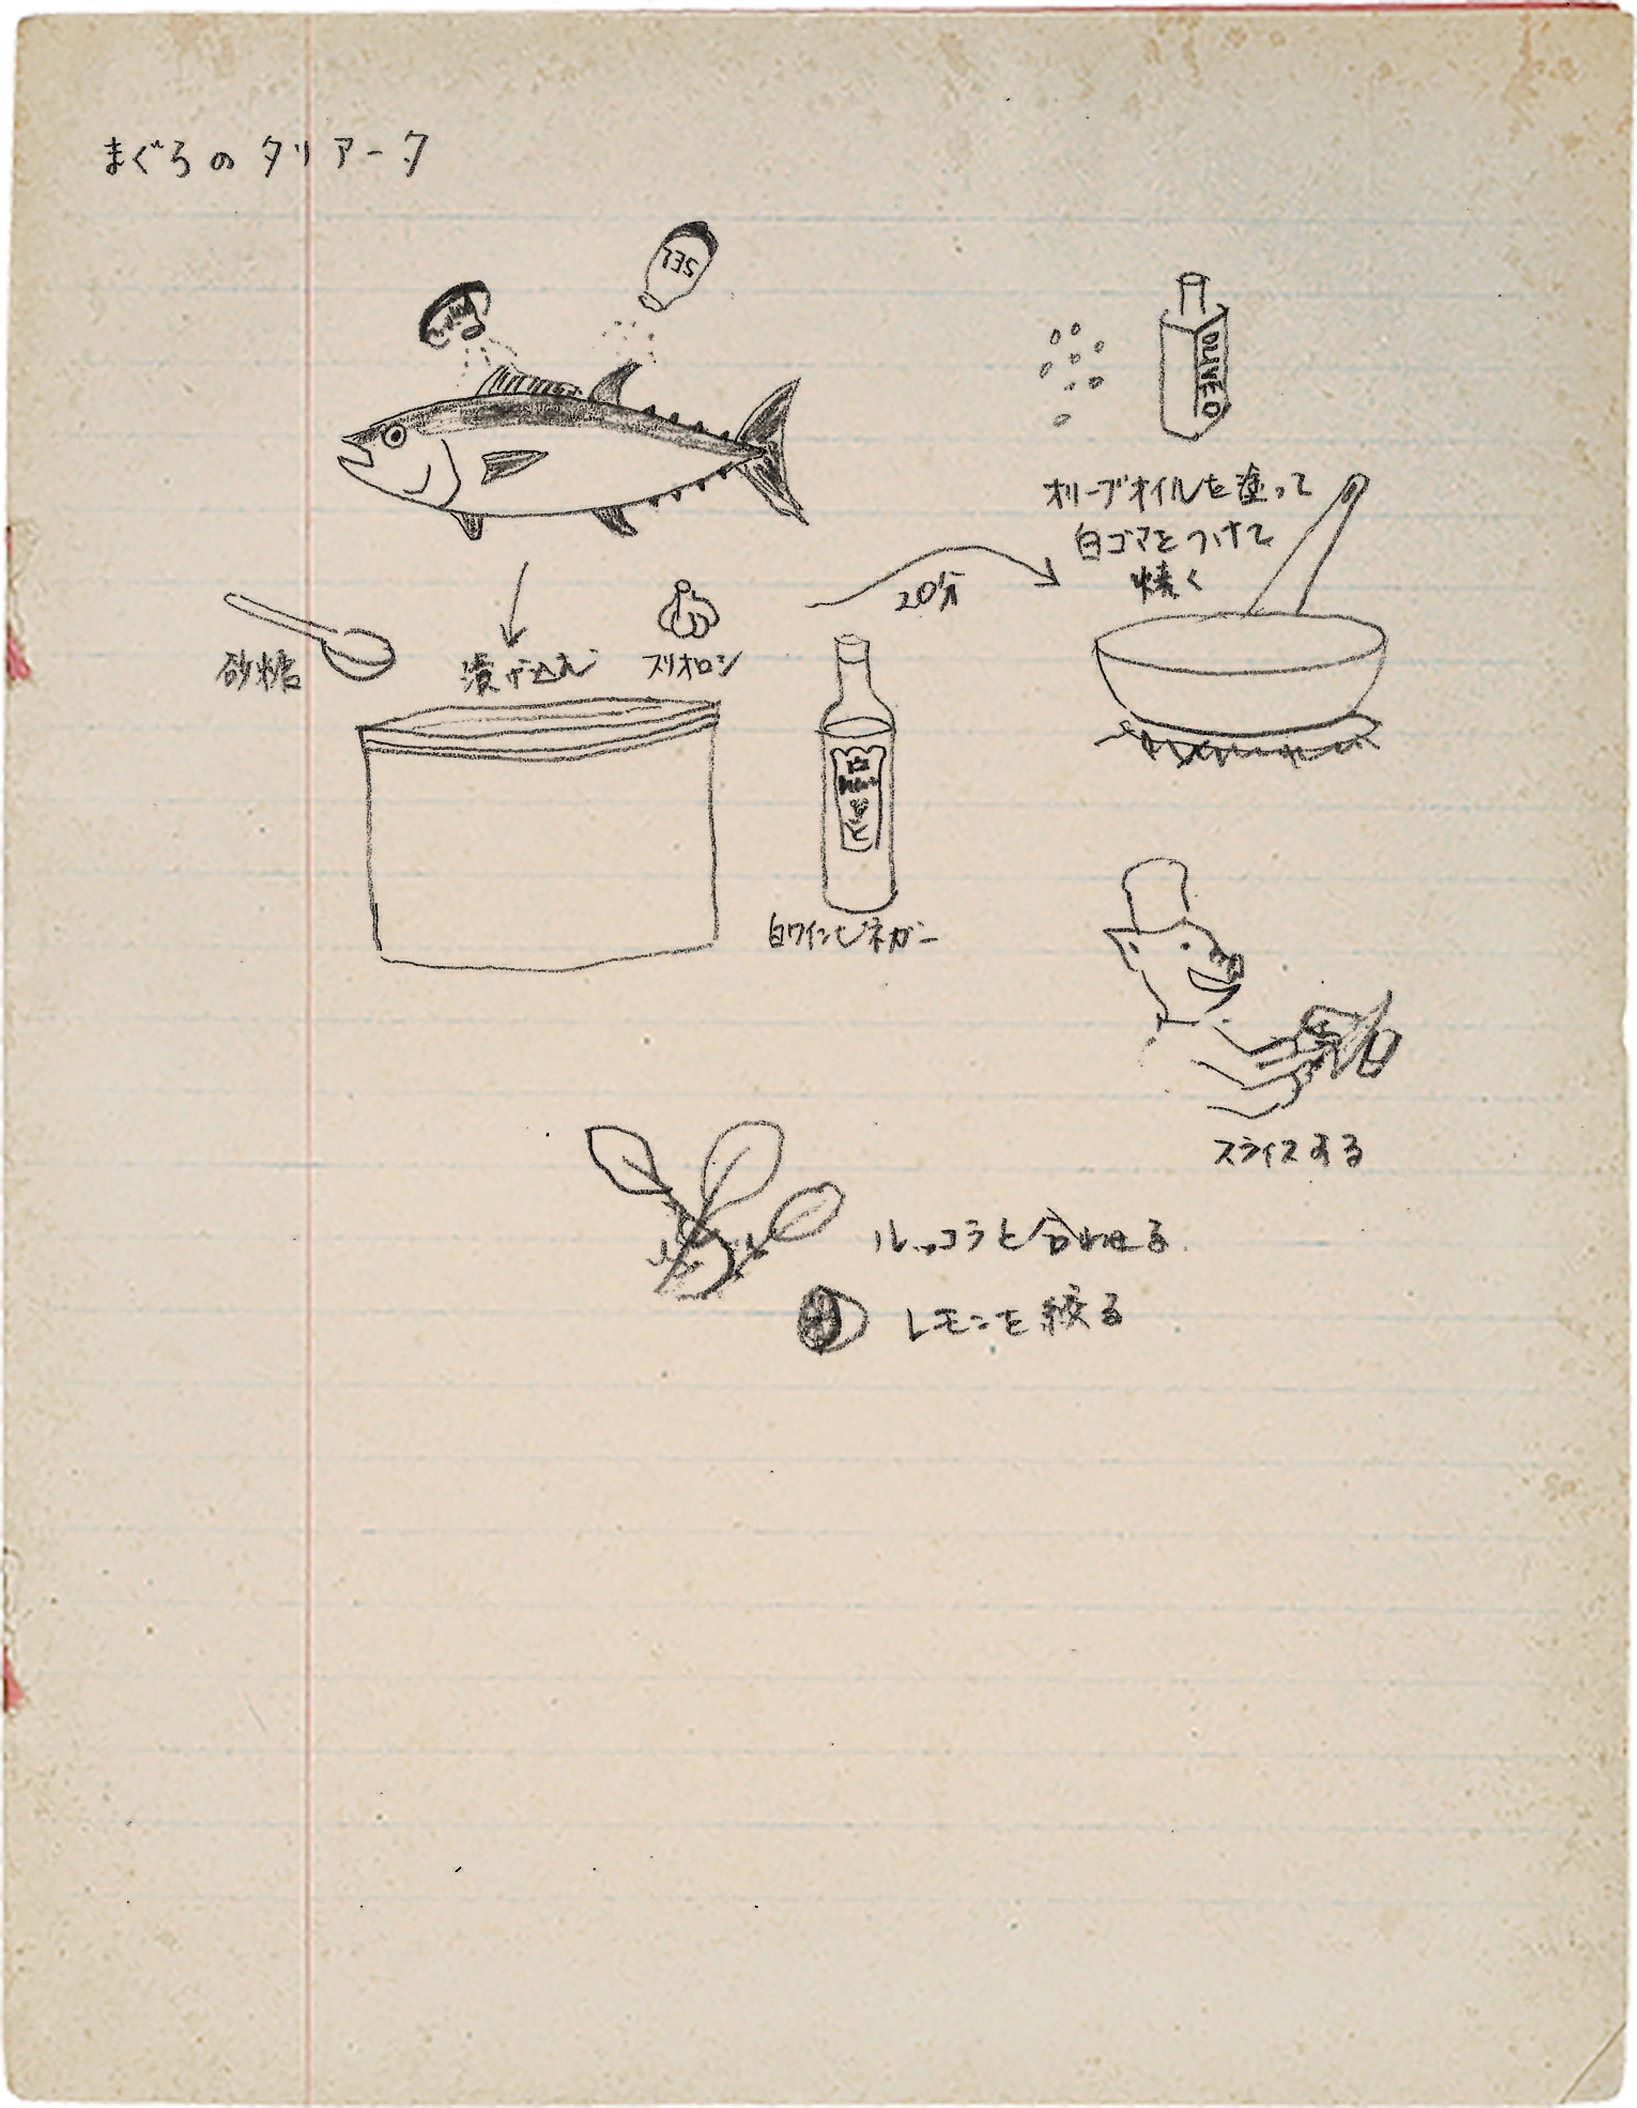 まぐろのタリアータ
SEL
OLIVE O
オリーブオイルを塗って
白ゴマをつけて
焼く
20分
砂糖
漬け込む
スリオロシ
白
白ワインビネガー
スライスする
ルッコラと合わせる
レモンを絞る